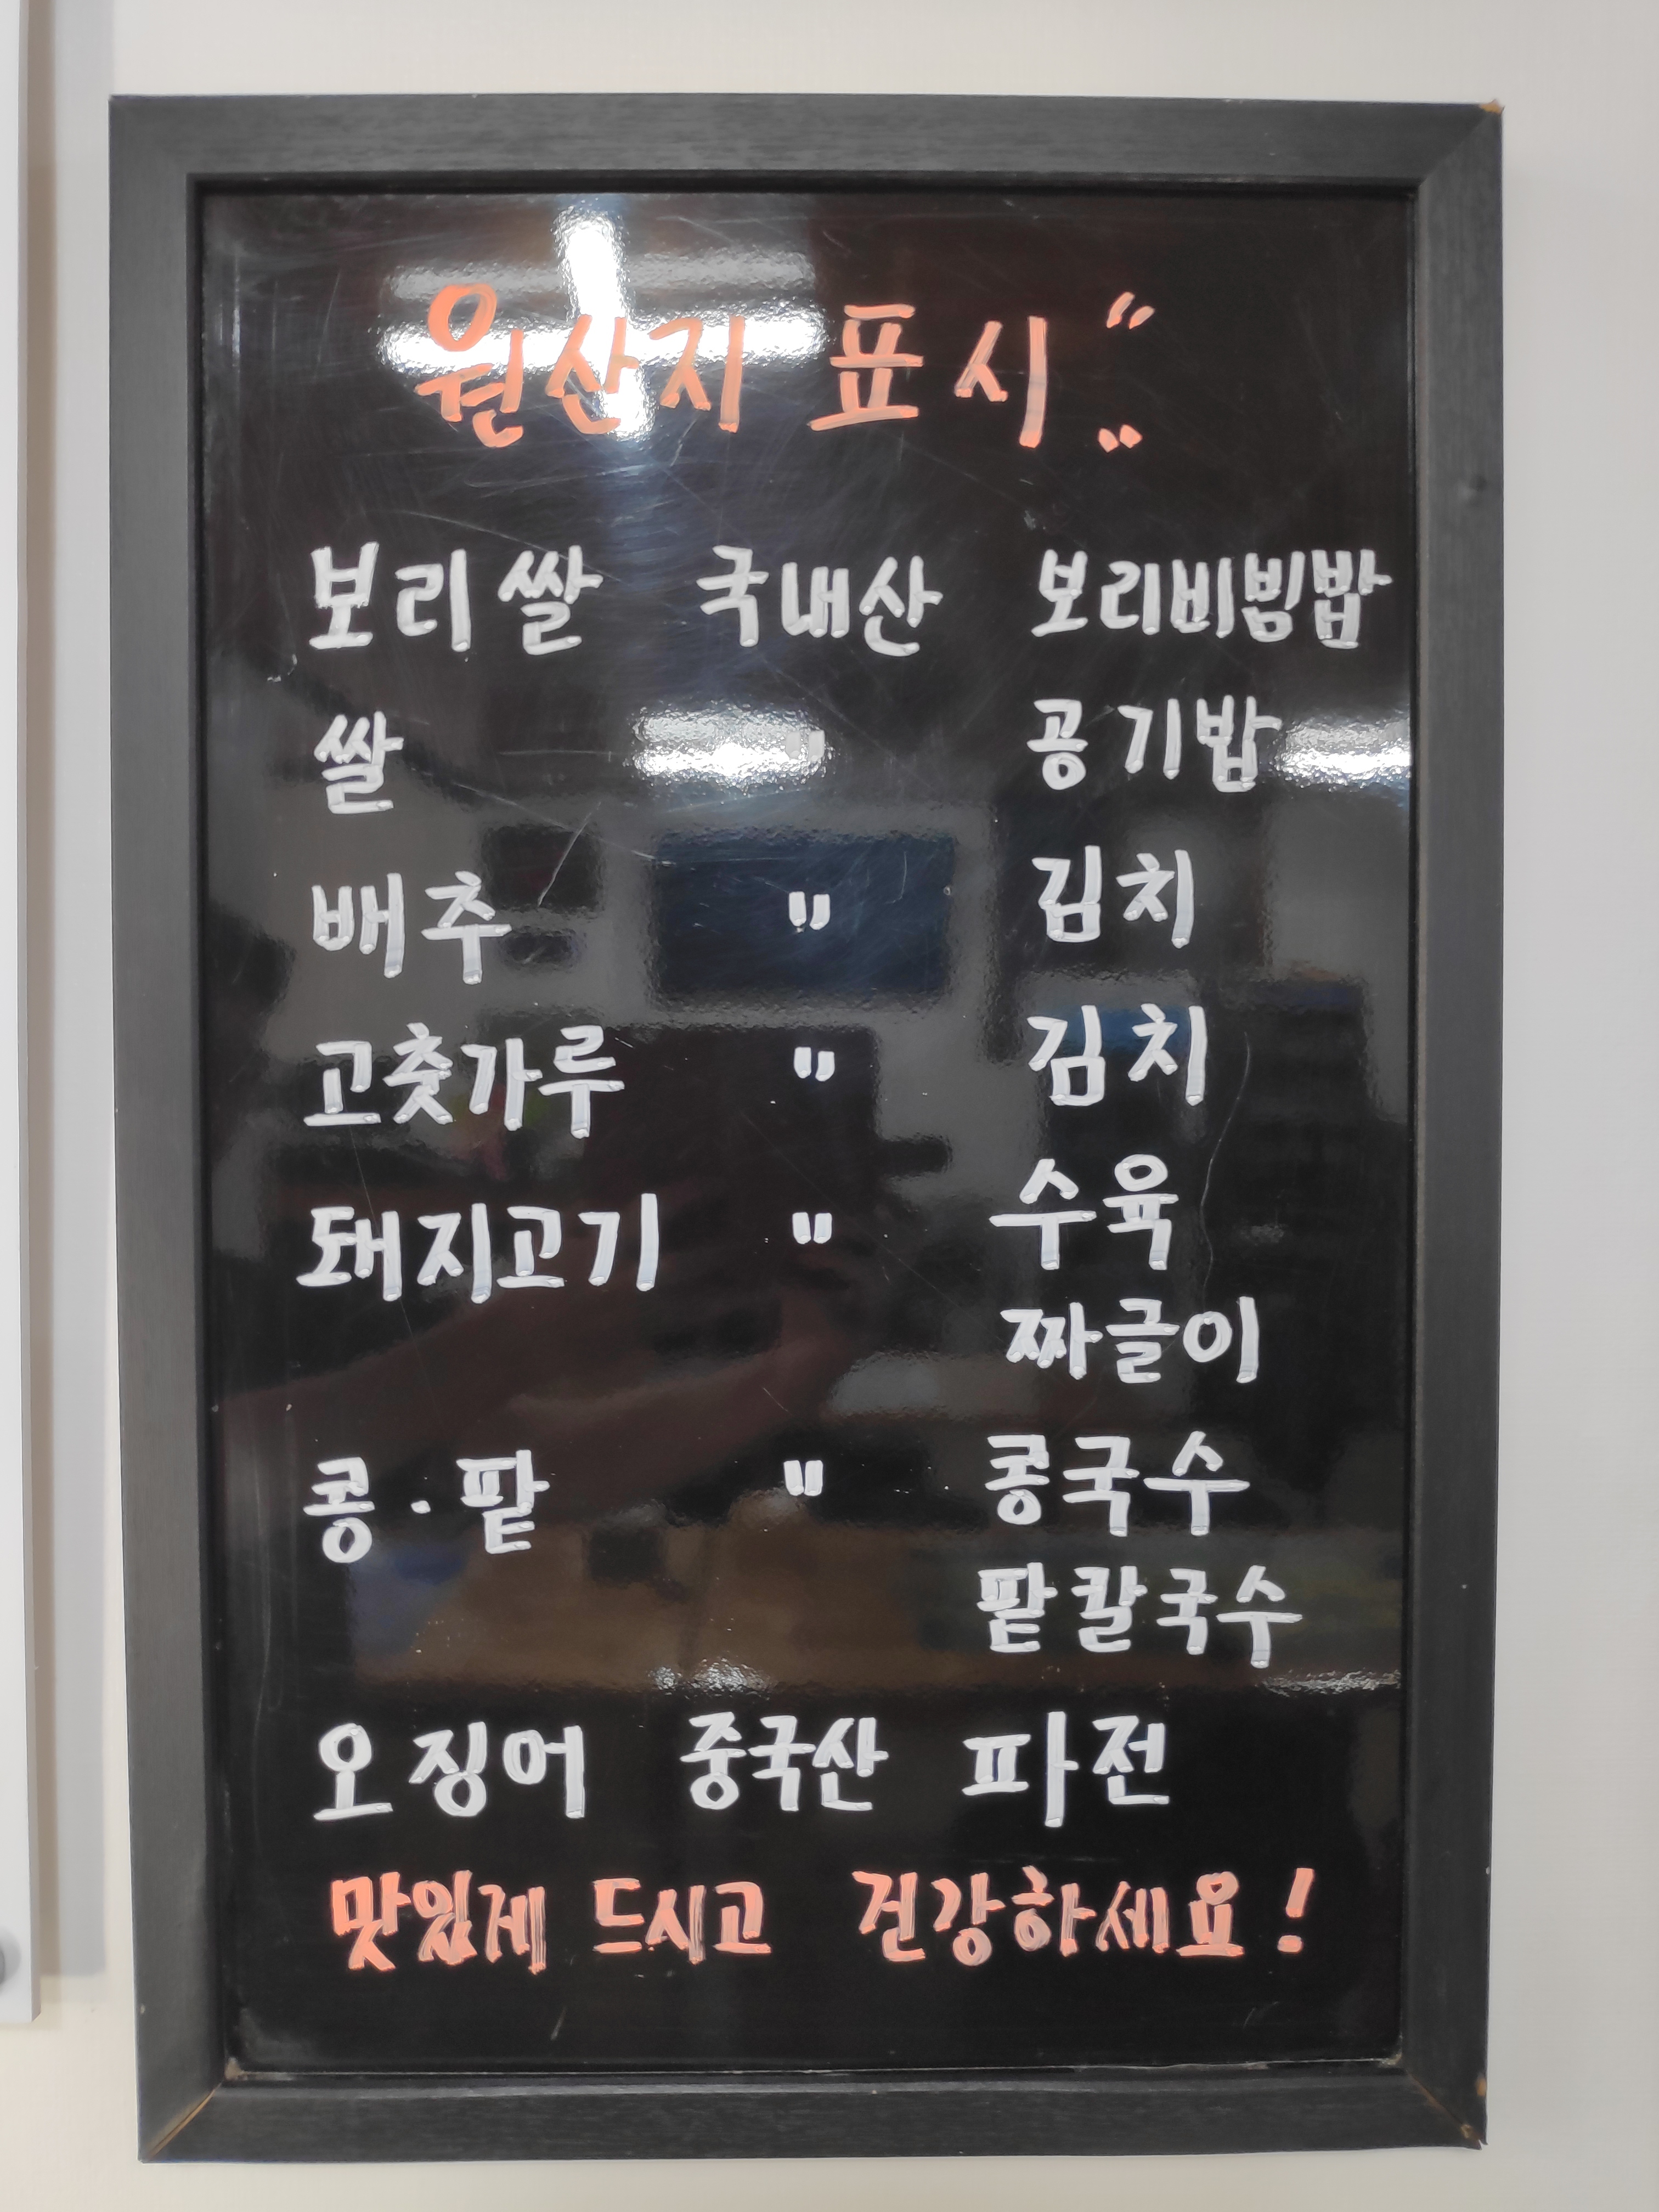 원산지 표시!!
보리쌀 국내산 보리비빔밥
쌀 " 공기밥
배추 " 김치
고춧가루 " 김치
돼지고기 " 수육
짜글이
콩·팥 " 콩국수
팥칼국수
오징어 중국산 파전
맛있게 드시고 건강하세요!